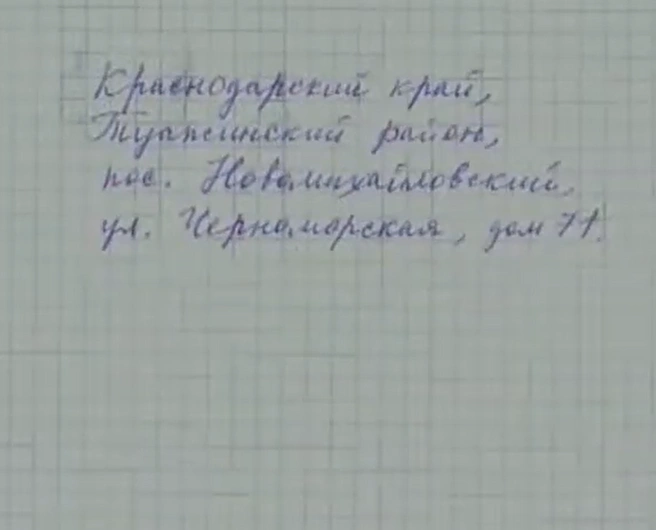 Краснодарский край,
Туапсинский район,
пос. Новомихайловский,
ул. Черноморская, дом 71.